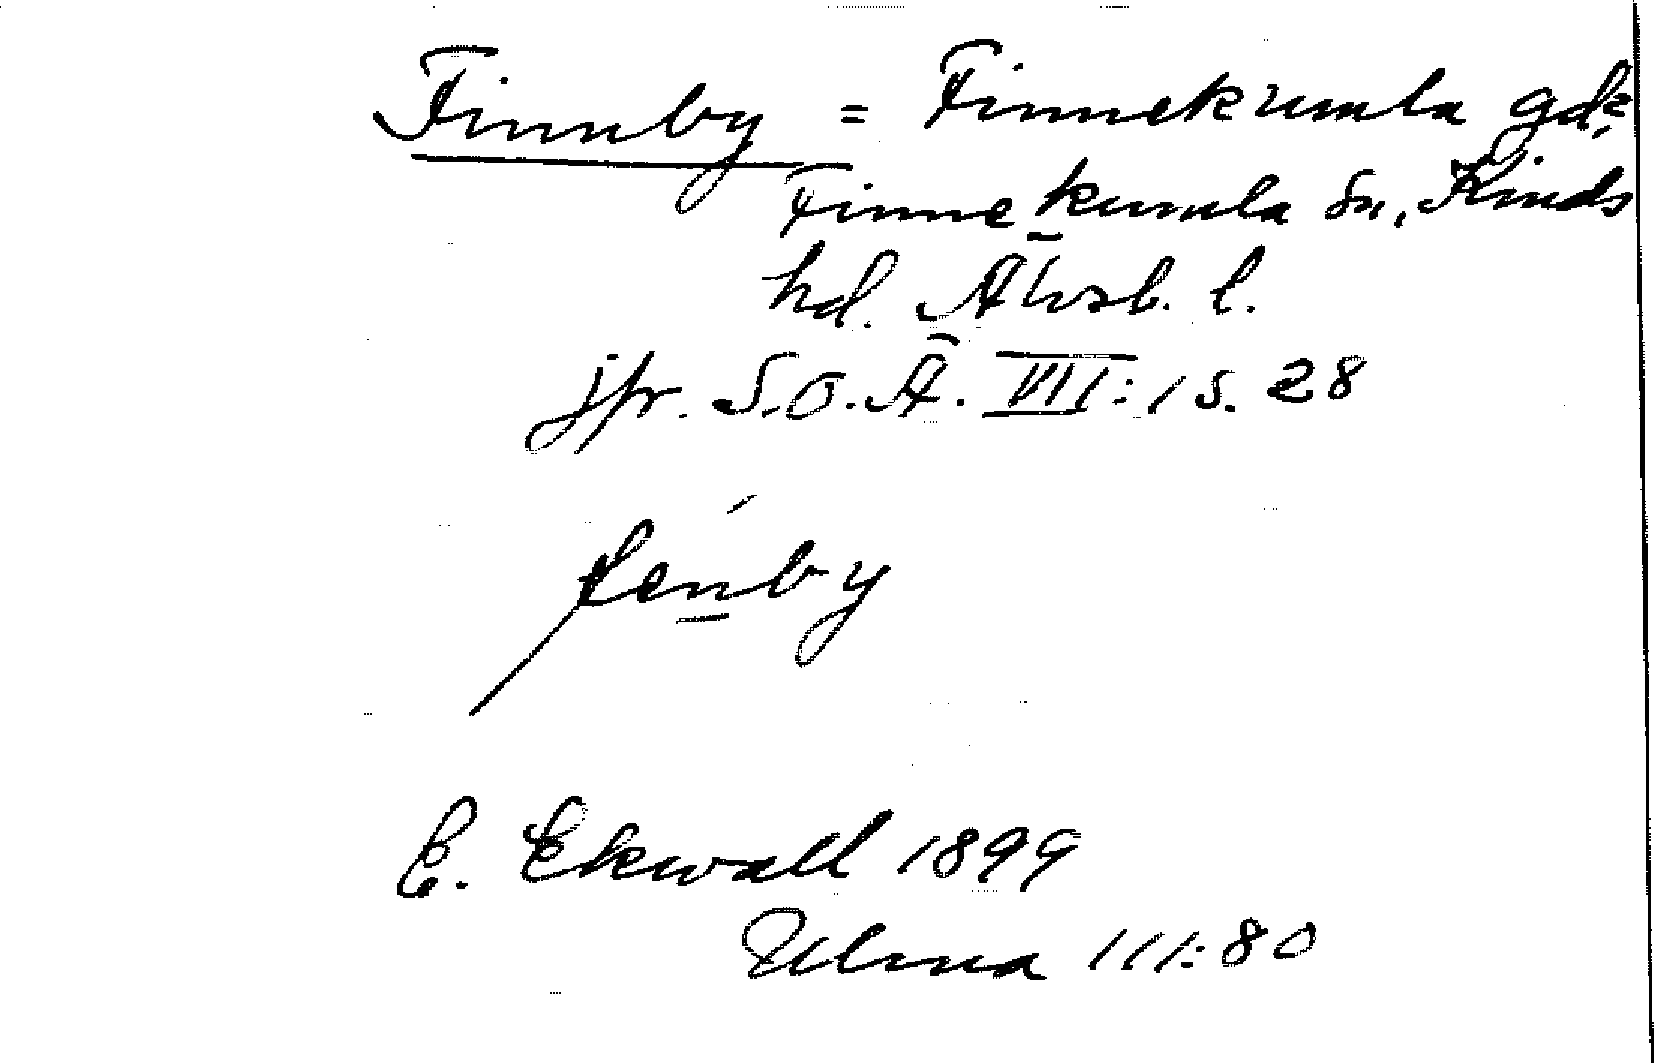 Finnby = Finnekumla gd,
Finnekumla sn, Kinds
hd. Älvsb. l.
jfr. S.O.Ä. VII:1 s. 28
fenby
E. Ekwall 1899
Ulma 111:80